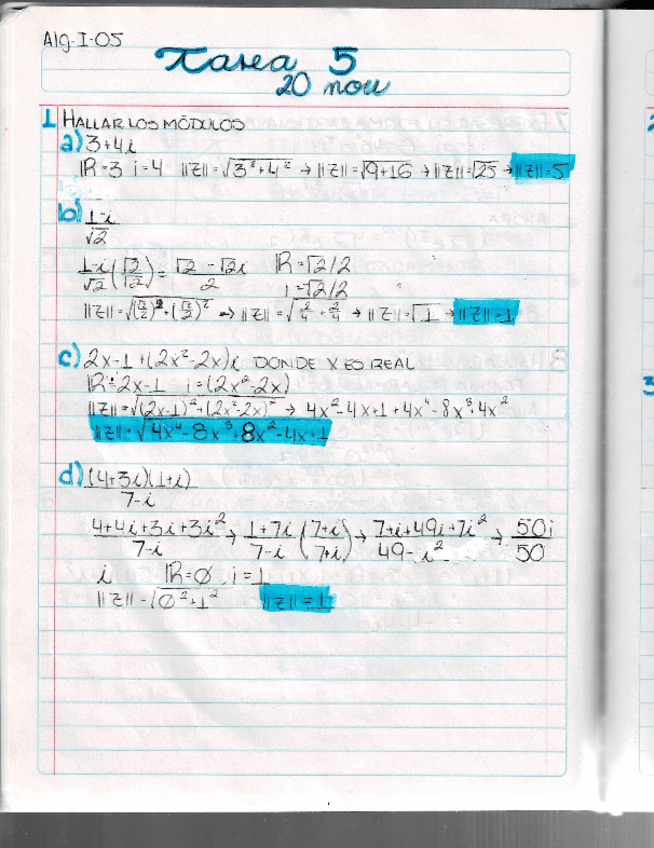 Alg-I-05
Tarea 5
20 nov
1 HALLAR LOS MÓDULOS
a) 3+4i
IR=3 i=4 ||Z||=√3²+4² → ||Z||=√9+16 → ||Z||=√25 → ||Z||=5
b) 1-i/√2
1-i/√2 (√2/√2) = √2-√2i/2 IR=√2/2
i=√2/2
||Z||=√(√2/2)²+(√2/2)² → ||Z||=√2/4+2/4 → ||Z||=√1 → ||Z||=1
c) 2x-1+(2x²-2x)i DONDE X ES REAL
IR=2x-1 i=(2x²-2x)
||Z||=√(2x-1)²+(2x²-2x)² → 4x²-4x+1+4x⁴-8x³+4x²
||Z||=√4x⁴-8x³+8x²-4x+1
d) (4+3i)(1+i)/7-i
4+4i+3i+3i²/7-i → 1+7i/7-i (7+i/7+i) → 7+i+49i+7i²/49-i² → 50i/50
i IR=0 i=1
||Z||=√0²+1² ||Z||=1